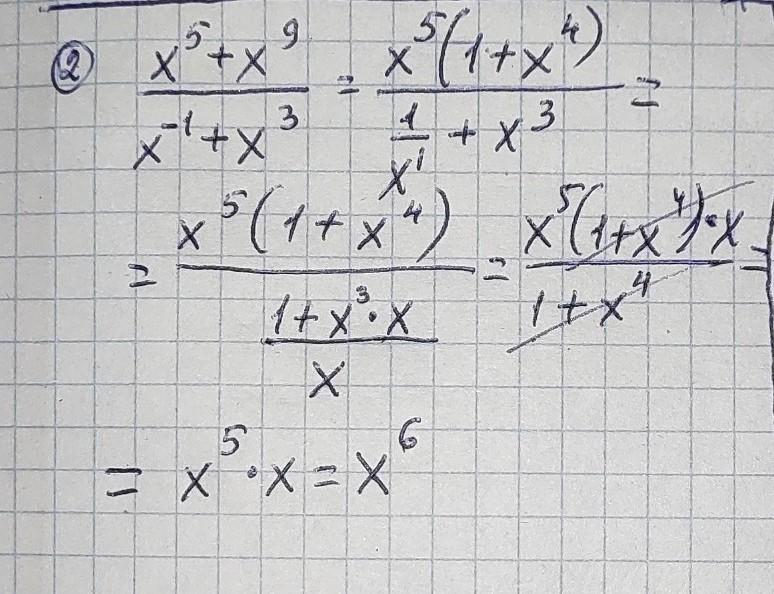 ② (x⁵ + x⁹)/(x⁻¹ + x³) = (x⁵(1 + x⁴))/(1/x¹ + x³) =
= (x⁵(1 + x⁴))/((1 + x³ · x)/x) = (x⁵(1 + x⁴) · x)/(1 + x⁴) =
= x⁵ · x = x⁶